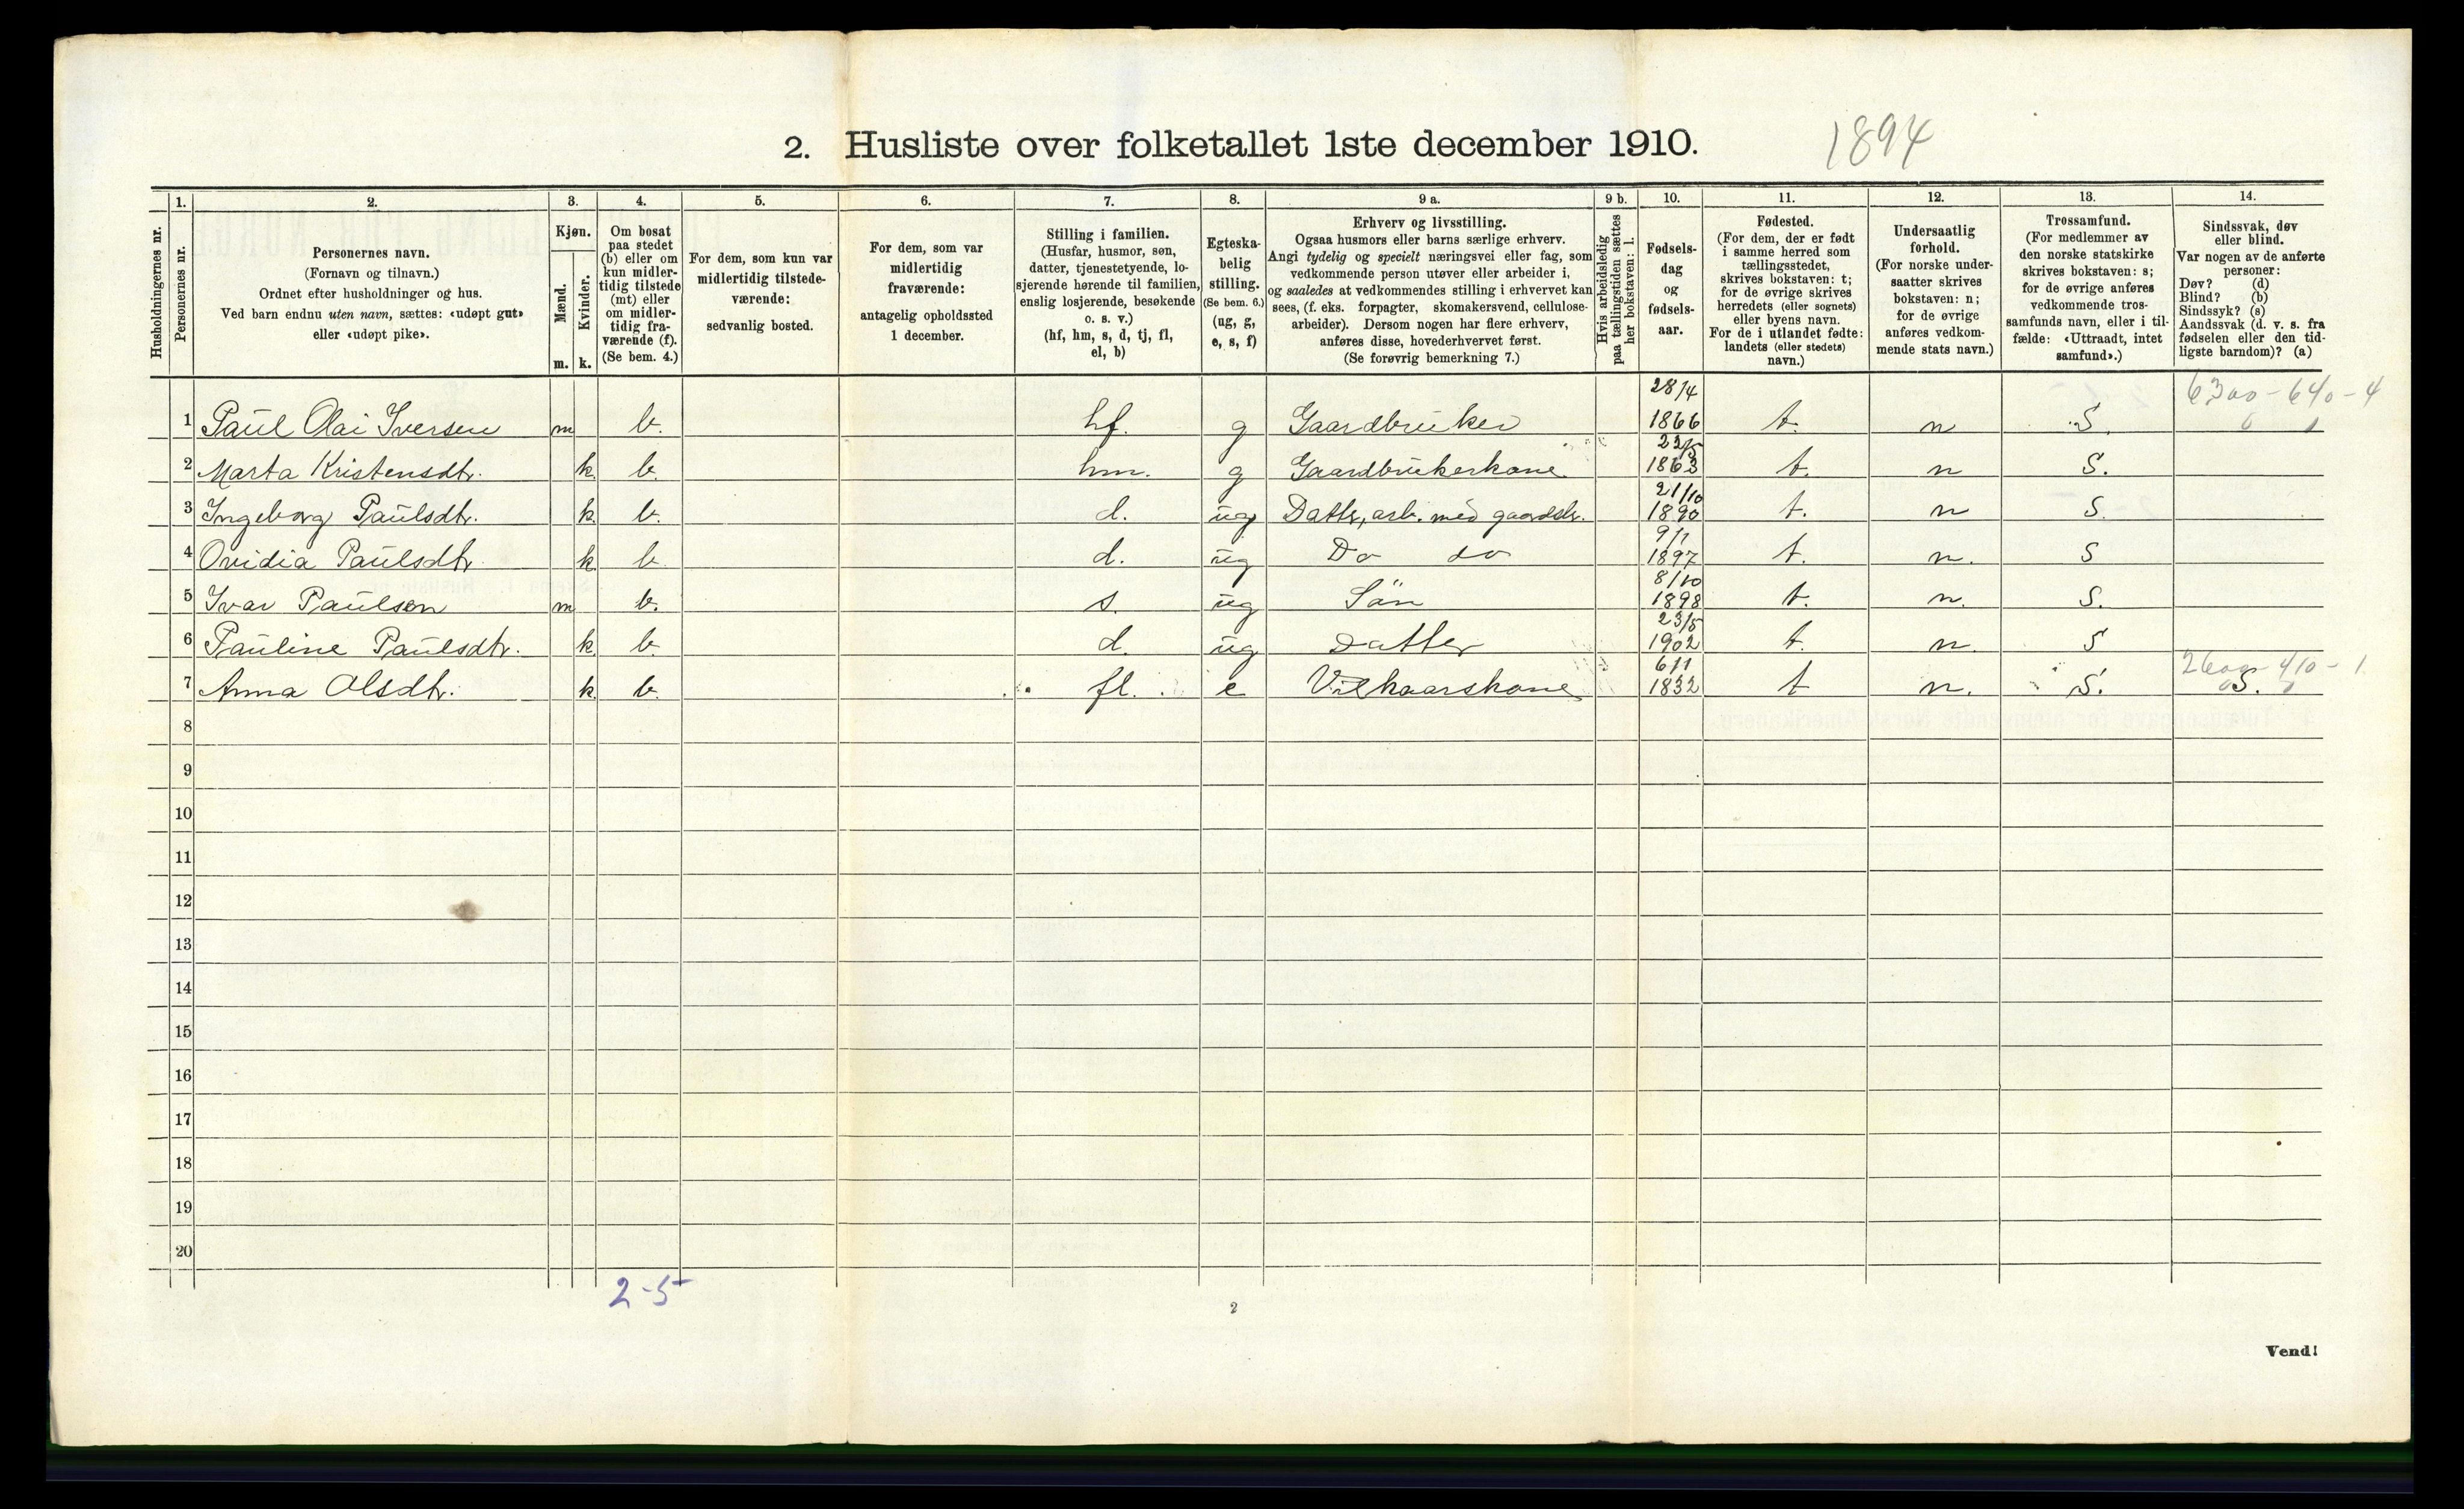 2. Husliste over folketallet 1ste december 1910.
1894
1. 2. 3. 4. 5. 6. 7. 8. 9 a. 9 b. 10. 11. 12. 13. 14.
Husholdningernes nr.
Personernes nr.
Personernes navn.
(Fornavn og tilnavn.)
Ordnet efter husholdninger og hus.
Ved barn endnu uten navn, sættes: «udøpt gut»
eller «udøpt pike».
Kjøn.
Mænd.
Kvinder.
m. k.
Om bosat
paa stedet
(b) eller om
kun midler-
tidig tilstede
(mt) eller
om midler-
tidig fra-
værende (f).
(Se bem. 4.)
For dem, som kun var
midlertidig tilstede-
værende:
sedvanlig bosted.
For dem, som var
midlertidig
fraværende:
antagelig opholdssted
1 december.
Stilling i familien.
(Husfar, husmor, søn,
datter, tjenestetyende, lo-
sjerende hørende til familien,
enslig losjerende, besøkende
o. s. v.)
(hf, hm, s, d, tj, fl,
el, b)
Egteska-
belig
stilling.
(Se bem. 6.)
(ug, g,
e, s, f)
Erhverv og livsstilling.
Ogsaa husmors eller barns særlige erhverv.
Angi tydelig og specielt næringsvei eller fag, som
vedkommende person utøver eller arbeider i,
og saaledes at vedkommendes stilling i erhvervet kan
sees, (f. eks. forpagter, skomakersvend, cellulose-
arbeider). Dersom nogen har flere erhverv,
anføres disse, hovederhvervet først.
(Se forøvrig bemerkning 7.)
Hvis arbeidsledig
paa tællingstiden sættes
her bokstaven: l.
Fødsels-
dag
og
fødsels-
aar.
Fødested.
(For dem, der er født
i samme herred som
tællingsstedet,
skrives bokstaven: t;
for de øvrige skrives
herredets (eller sognets)
eller byens navn.
For de i utlandet fødte:
landets (eller stedets)
navn.)
Undersaatlig
forhold.
(For norske under-
saatter skrives
bokstaven: n;
for de øvrige
anføres vedkom-
mende stats navn.)
Trossamfund.
(For medlemmer av
den norske statskirke
skrives bokstaven: s;
for de øvrige anføres
vedkommende tros-
samfunds navn, eller i til-
fælde: «Uttraadt, intet
samfund».)
Sindssvak, døv
eller blind.
Var nogen av de anførte
personer:
Døv? (d)
Blind? (b)
Sindssyk? (s)
Aandssvak (d. v. s. fra
fødselen eller den tid-
ligste barndom)? (a)
1 Paul Olai Iversen m b. hf. g Gaardbruker 28/4 1866 t. n S. 6300-640-4
2 Marta Kristensdtr. k b. hm. g Gaardbrukerkone 1863 t. n S.
3 Ingeborg Paulsdtr. k b. d. ug Datter, arb. med gaardsbr. 21/10 1890 t. n S.
4 Ovidia Paulsdtr. k b. d. ug Do do 9/1 1897 t. n. S
5 Ivar Paulsen m b. s. ug Søn 8/10 1898 t. n. S.
6 Pauline Paulsdtr. k b. d. ug Datter 23/5 1902 t. n. S
7 Anna Olsdtr. k b. fl. e Vilkaarskone 6/1 1832 t n. S. S.
8
9
10
11
12
13
14
15
16
17
18
19
20
2-5
2
Vend!